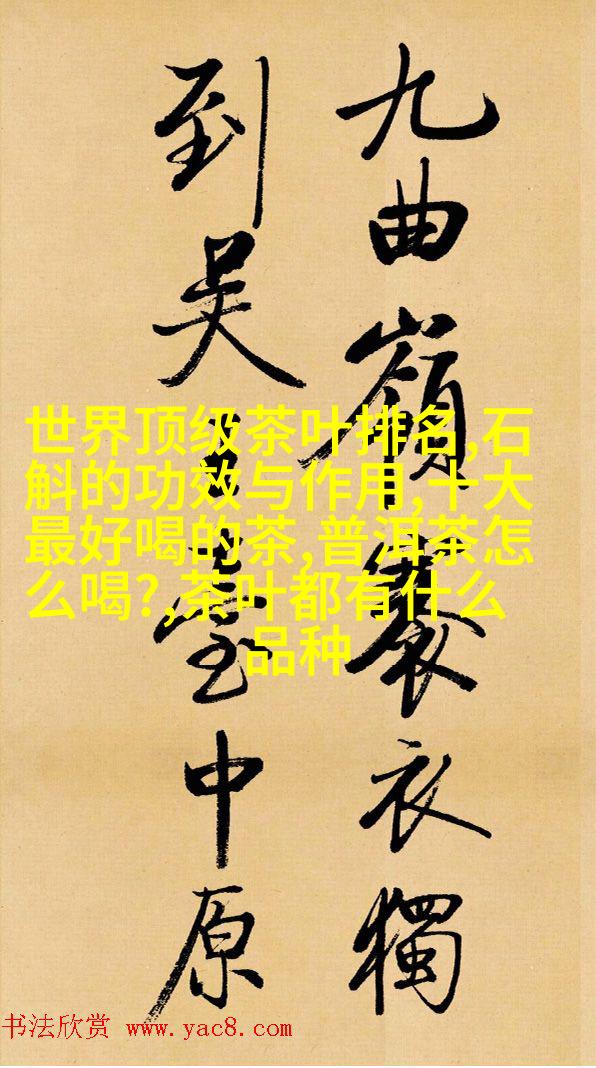 九曲嶺褰衣獨
到吴王臺中原
世界顶级茶叶排名,石
斛的功效与作用,十大
最好喝的茶,普洱茶怎
么喝?,茶叶都有什么
品种
书法欣赏 www.yac8.com